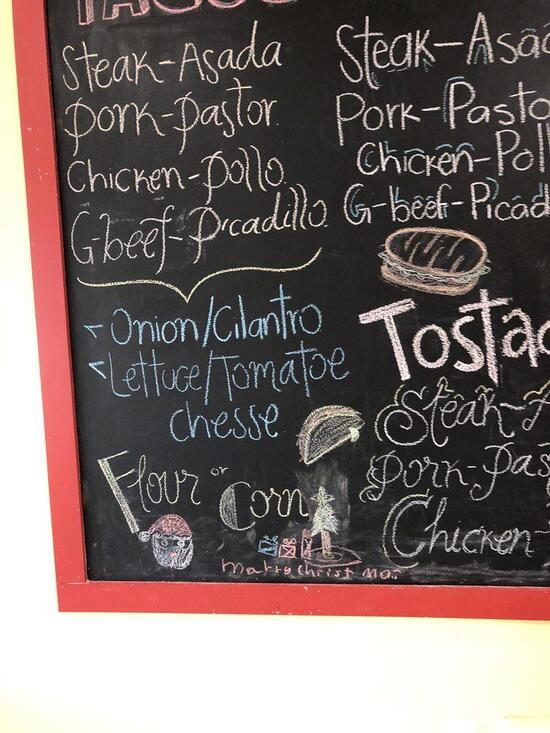 TACOS
Steak-Asada
pork-pastor
Chicken-pollo
G-beef-Picadillo
- Onion/Cilantro
- Lettuce/Tomatoe
chesse
Flour or Corn
Marry Christ mas
Steak-Asad
Pork-Pasto
Chicken-Poll
G-beef-Picad
Tostad
Steak-A
pork-pas
Chicken-